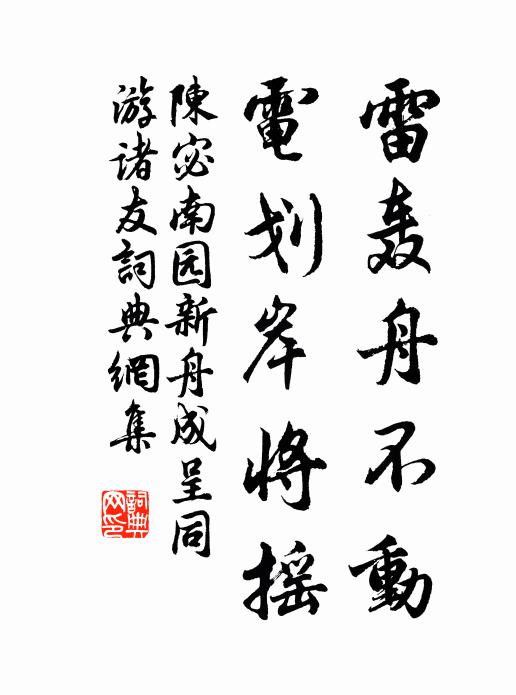 雷轰舟不動
電划岸将摇
陳宓南园新舟成呈同
游诸友詞典網集
詞典网印